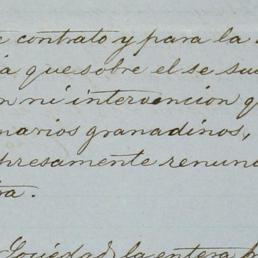 contrato y para la
que sobre el se
ni intervencion
granadinos,
presamente renun
Sociedad, la entera